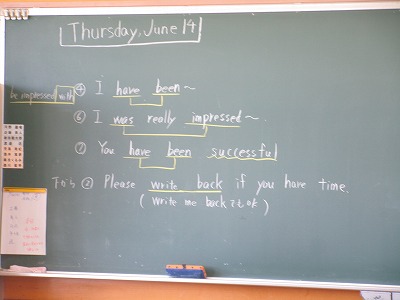 Thursday, June 14
be impressed with ④ I have been ~
⑥ I was really impressed ~.
⑦ You have been successful
下から ② Please write back if you have time.
( write me back でもOK )